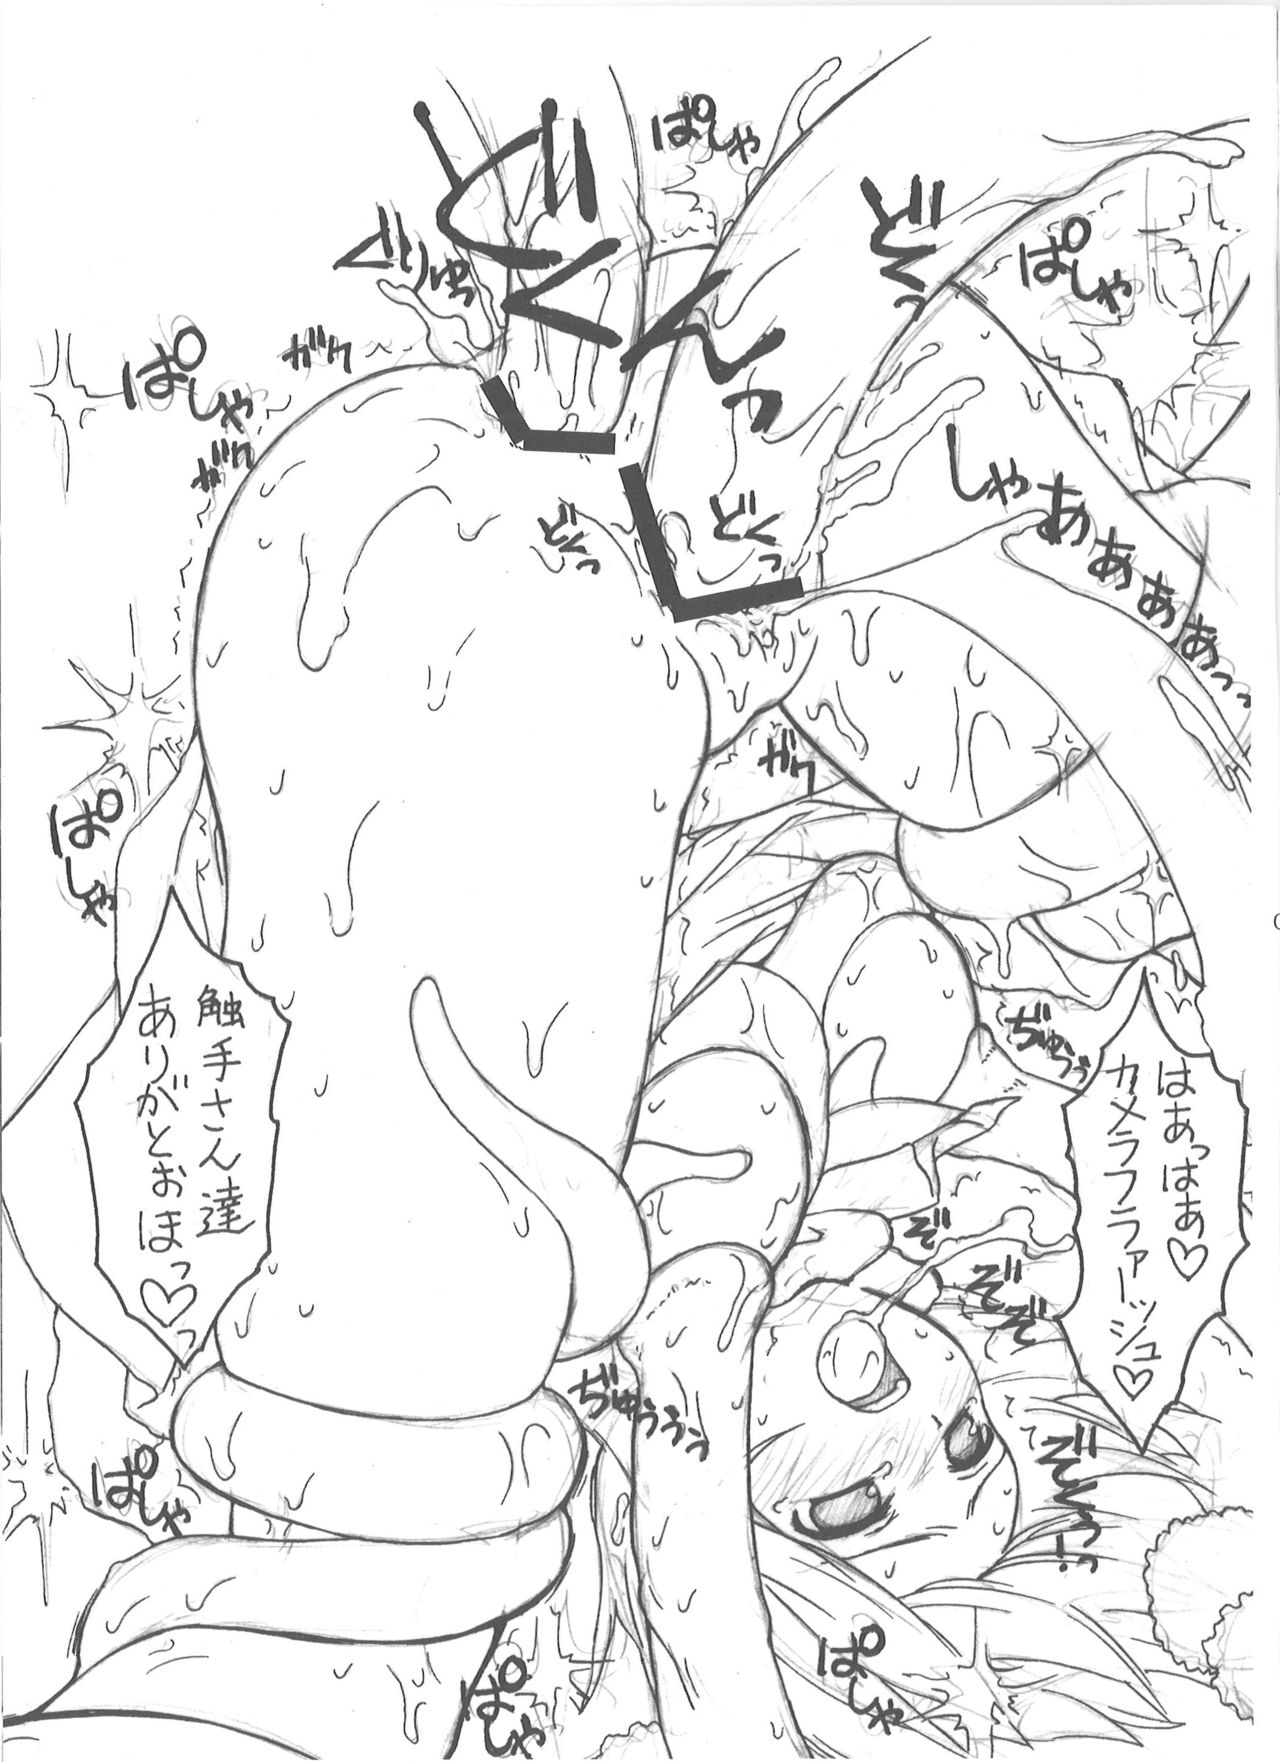 ぱしゃ
どくんっ
どくっ
ぱしゃ
ぐりゅっ
ガク
ぱしゃ
ガク
しゃあああああっっ
どくっ
どくっ
ガク
ぱしゃ
はあっはあ♡
カメラフラァーッシュ♡
ぢゅうぅ
触手さん達
ありがとおほっ♡っ
ぞ
ぞぞぞ
ぢゅううぅ
ぞくぅっ
ぱしゃ
ぱしゃ
ぱしゃ